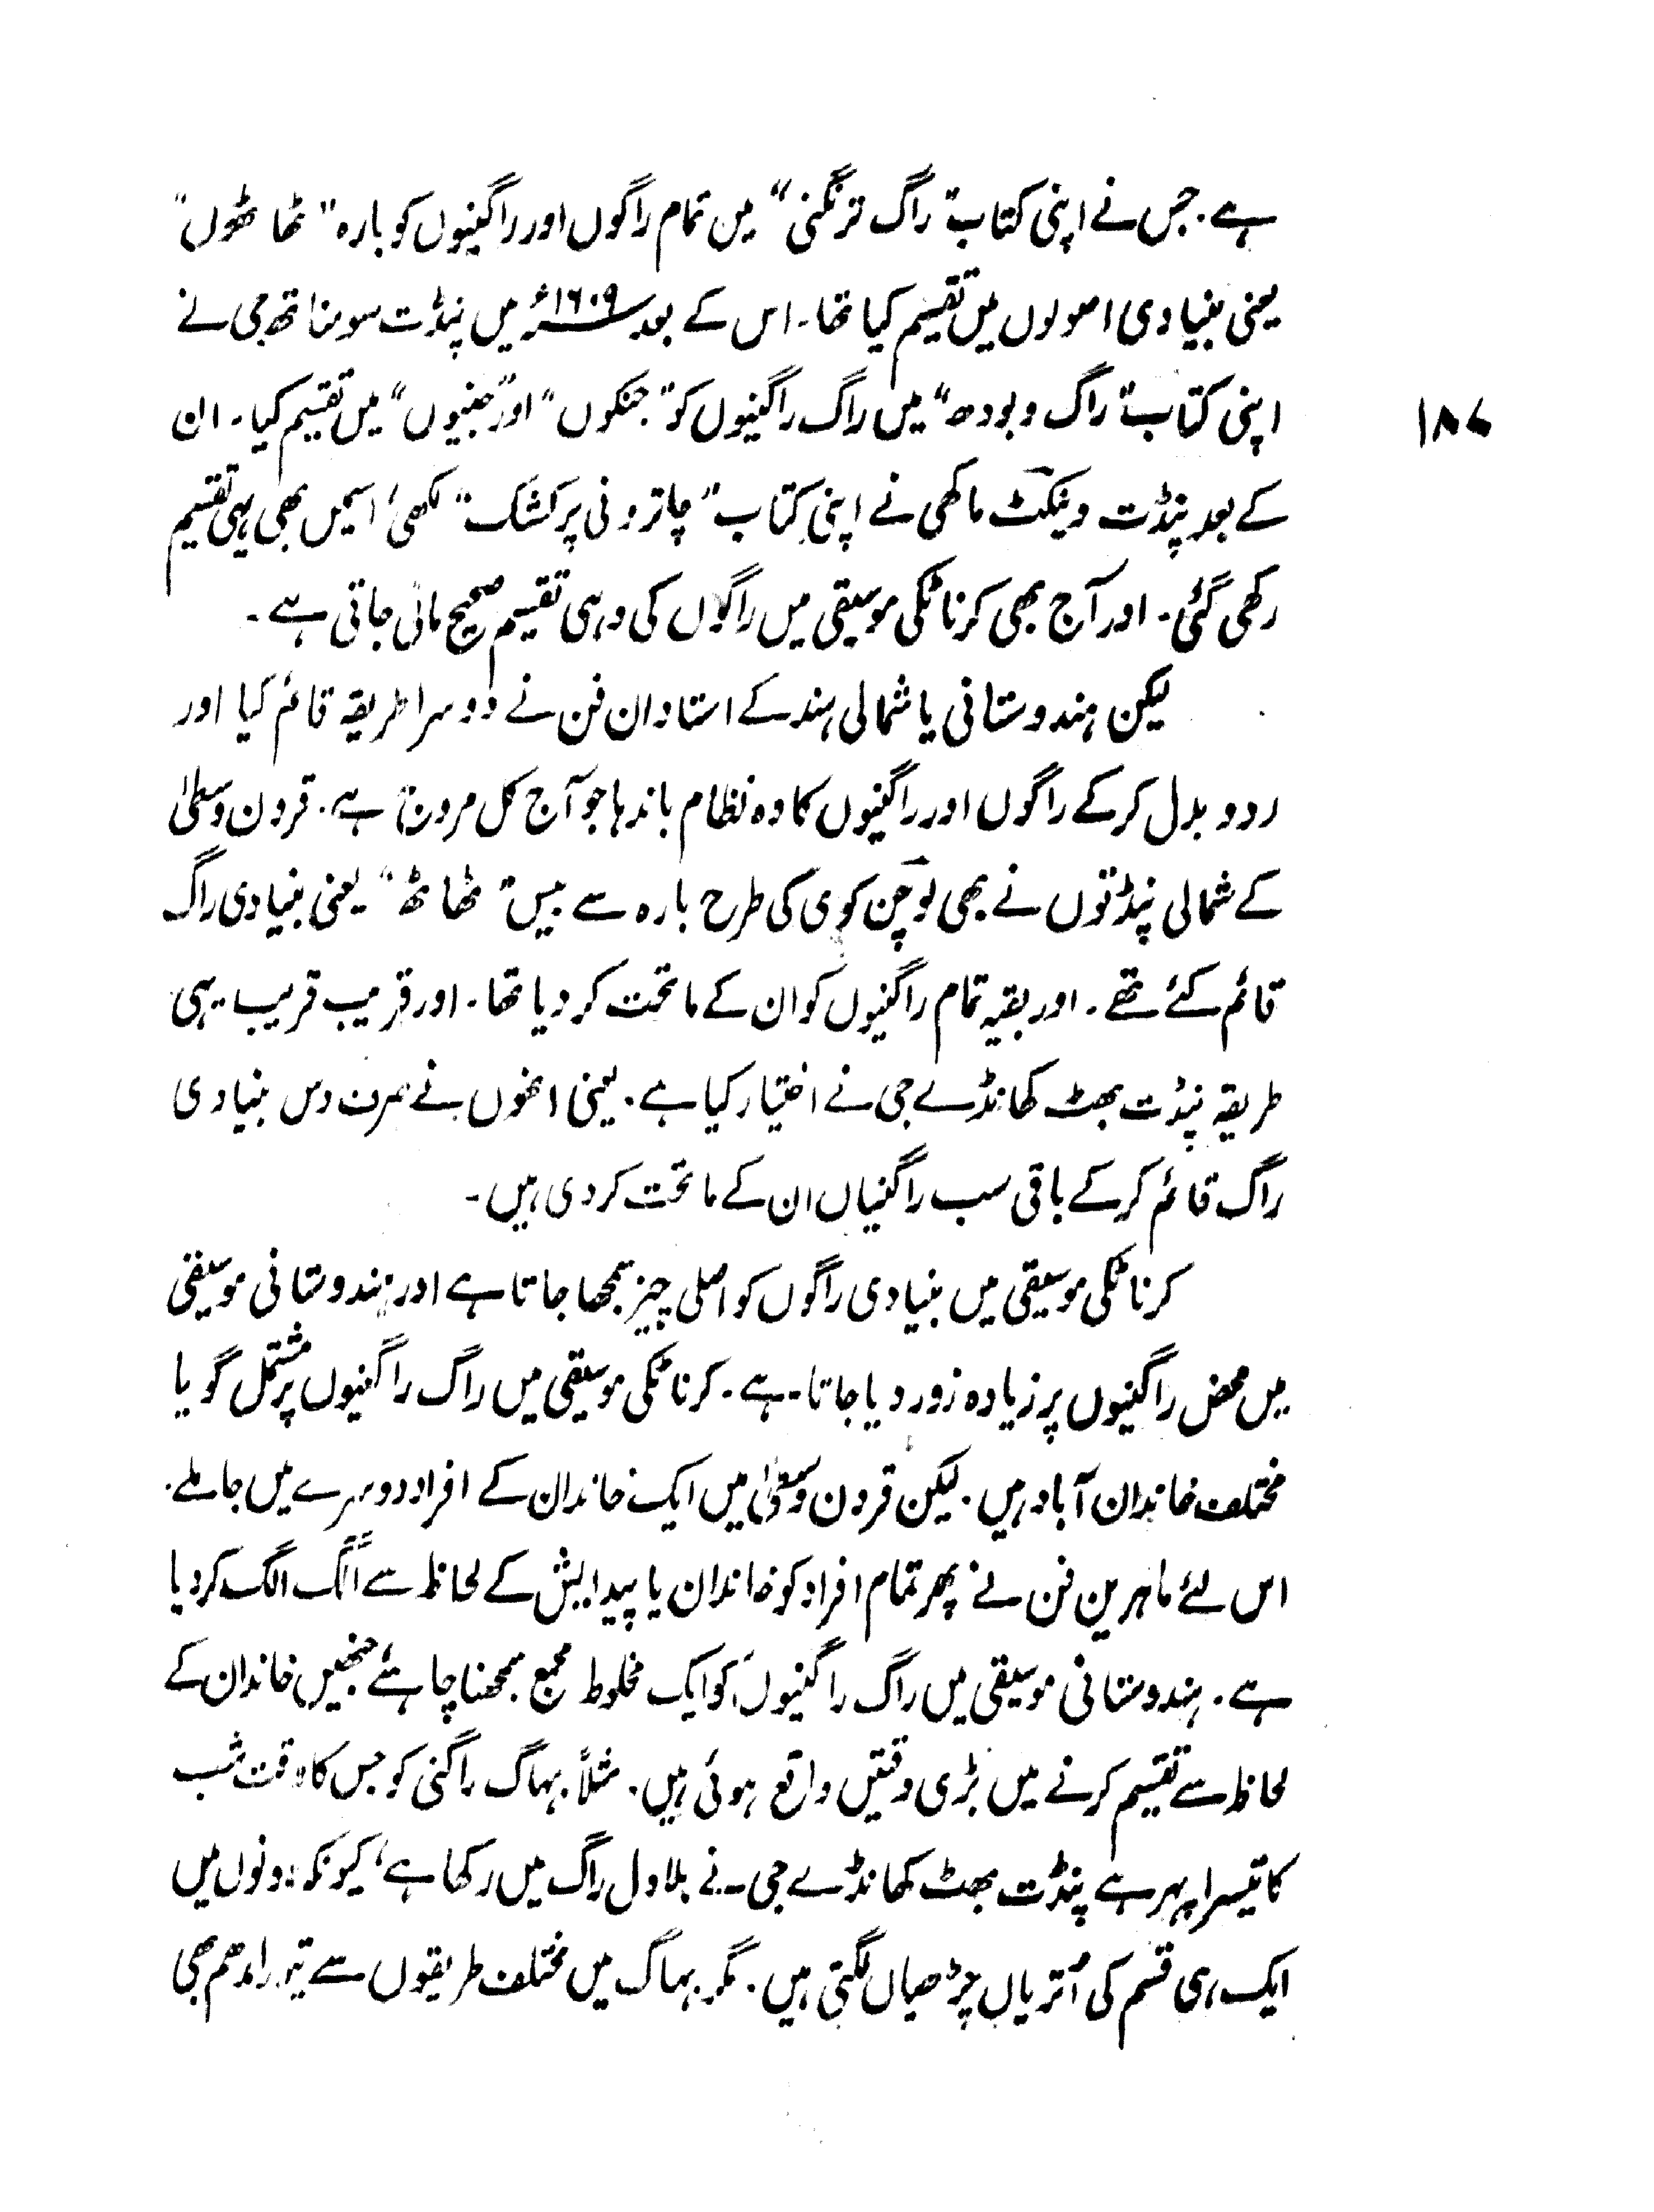 ہے۔ جس نے اپنی کتاب "راگ ترنگنی" میں تمام راگوں اور راگنیوں کو بارہ "ٹھا ٹھوں"
یعنی بنیادی اصولوں میں تقسیم کیا تھا۔ اس کے بعد ۱۶۰۹ء میں پنڈت سومناتھ جی نے
اپنی کتاب "راگ وبودھ" میں راگ راگنیوں کو "جنکوں" اور "جنیوں" میں تقسیم کیا۔ ان
۱۸۷
کے بعد پنڈت وینکٹ ماکھی نے اپنی کتاب "چاتردنی پرکشک" لکھی' اسمیں بھی یہی تقسیم
رکھی گئی۔ اور آج بھی کرناٹکی موسیقی میں راگوں کی وہی تقسیم صحیح مانی جاتی ہے۔
لیکن ہندوستانی یا شمالی ہند کے استادان فن نے دوسرا طریقہ قائم کیا اور
ردو بدل کرکے راگوں اور راگنیوں کا وہ نظام باندھا جو آج کل مروج ہے۔ قرون وسطیٰ
کے شمالی پنڈتوں نے بھی لوچن کوی کی طرح بارہ سے بیس "ٹھاٹھ" یعنی بنیادی راگ
قائم کئے تھے۔ اور بقیہ تمام راگنیوں کو ان کے ماتحت کر دیا تھا۔ اور قریب قریب یہی
طریقہ پنڈت بھٹ کھانڈے جی نے اختیار کیا ہے۔ یعنی انھوں نے صرف دس بنیادی
راگ قائم کرکے باقی سب راگنیاں ان کے ماتحت کر دی ہیں۔
کرناٹکی موسیقی میں بنیادی راگوں کو اصلی چیز سمجھا جاتا ہے اور ہندوستانی موسیقی
میں محض راگنیوں پر زیادہ زور دیا جاتا ہے۔ کرناٹکی موسیقی میں راگ راگنیوں پر مشتمل گویا
مختلف خاندان آباد ہیں۔ لیکن قرون وسطیٰ میں ایک خاندان کے افراد دوسرے میں جا ملے۔
اس لئے ماہرین فن نے پھر تمام افراد کو خاندان یا پیدایش کے لحاظ سے الگ الگ کر دیا
ہے۔ ہندوستانی موسیقی میں راگ راگنیوں کو ایک مخلوط مجمع سمجھنا چاہئے جنھیں خاندان کے
لحاظ سے تقسیم کرنے میں بڑی دقتیں واقع ہوئی ہیں۔ مثلاً بہاگ راگنی کو جس کا وقت شب
کا تیسرا پہر ہے پنڈت بھٹ کھانڈے جی نے بلاول راگ میں رکھا ہے' کیونکہ دونوں میں
ایک ہی قسم کی اُتریاں چڑھیاں لگتی ہیں۔ مگر بہاگ میں مختلف طریقوں سے تیور مدھم بھی